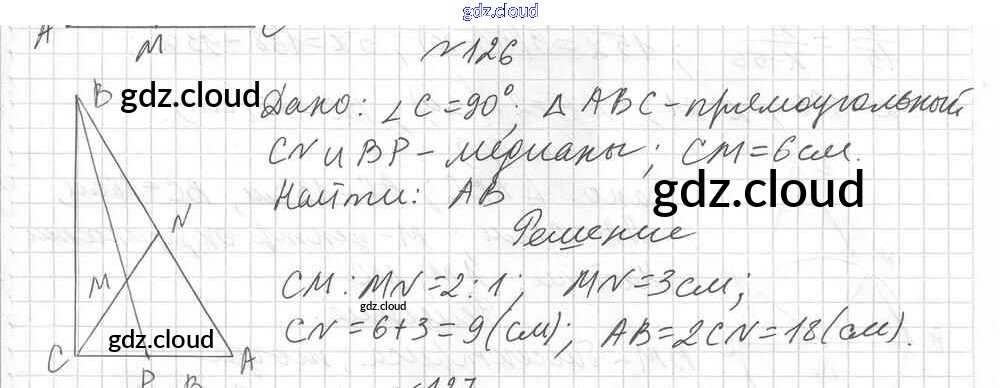 gdz.cloud
A M C
№126
B gdz.cloud Дано: ∠C=90°; △ABC-прямоугольный
CN и BP-медианы; CM=6см.
Найти: AB gdz.cloud
N Решение
M CM:MN=2:1; MN=3см;
gdz.cloud
CN=6+3=9(см); AB=2CN=18(см).
C gdz.cloud A
P B